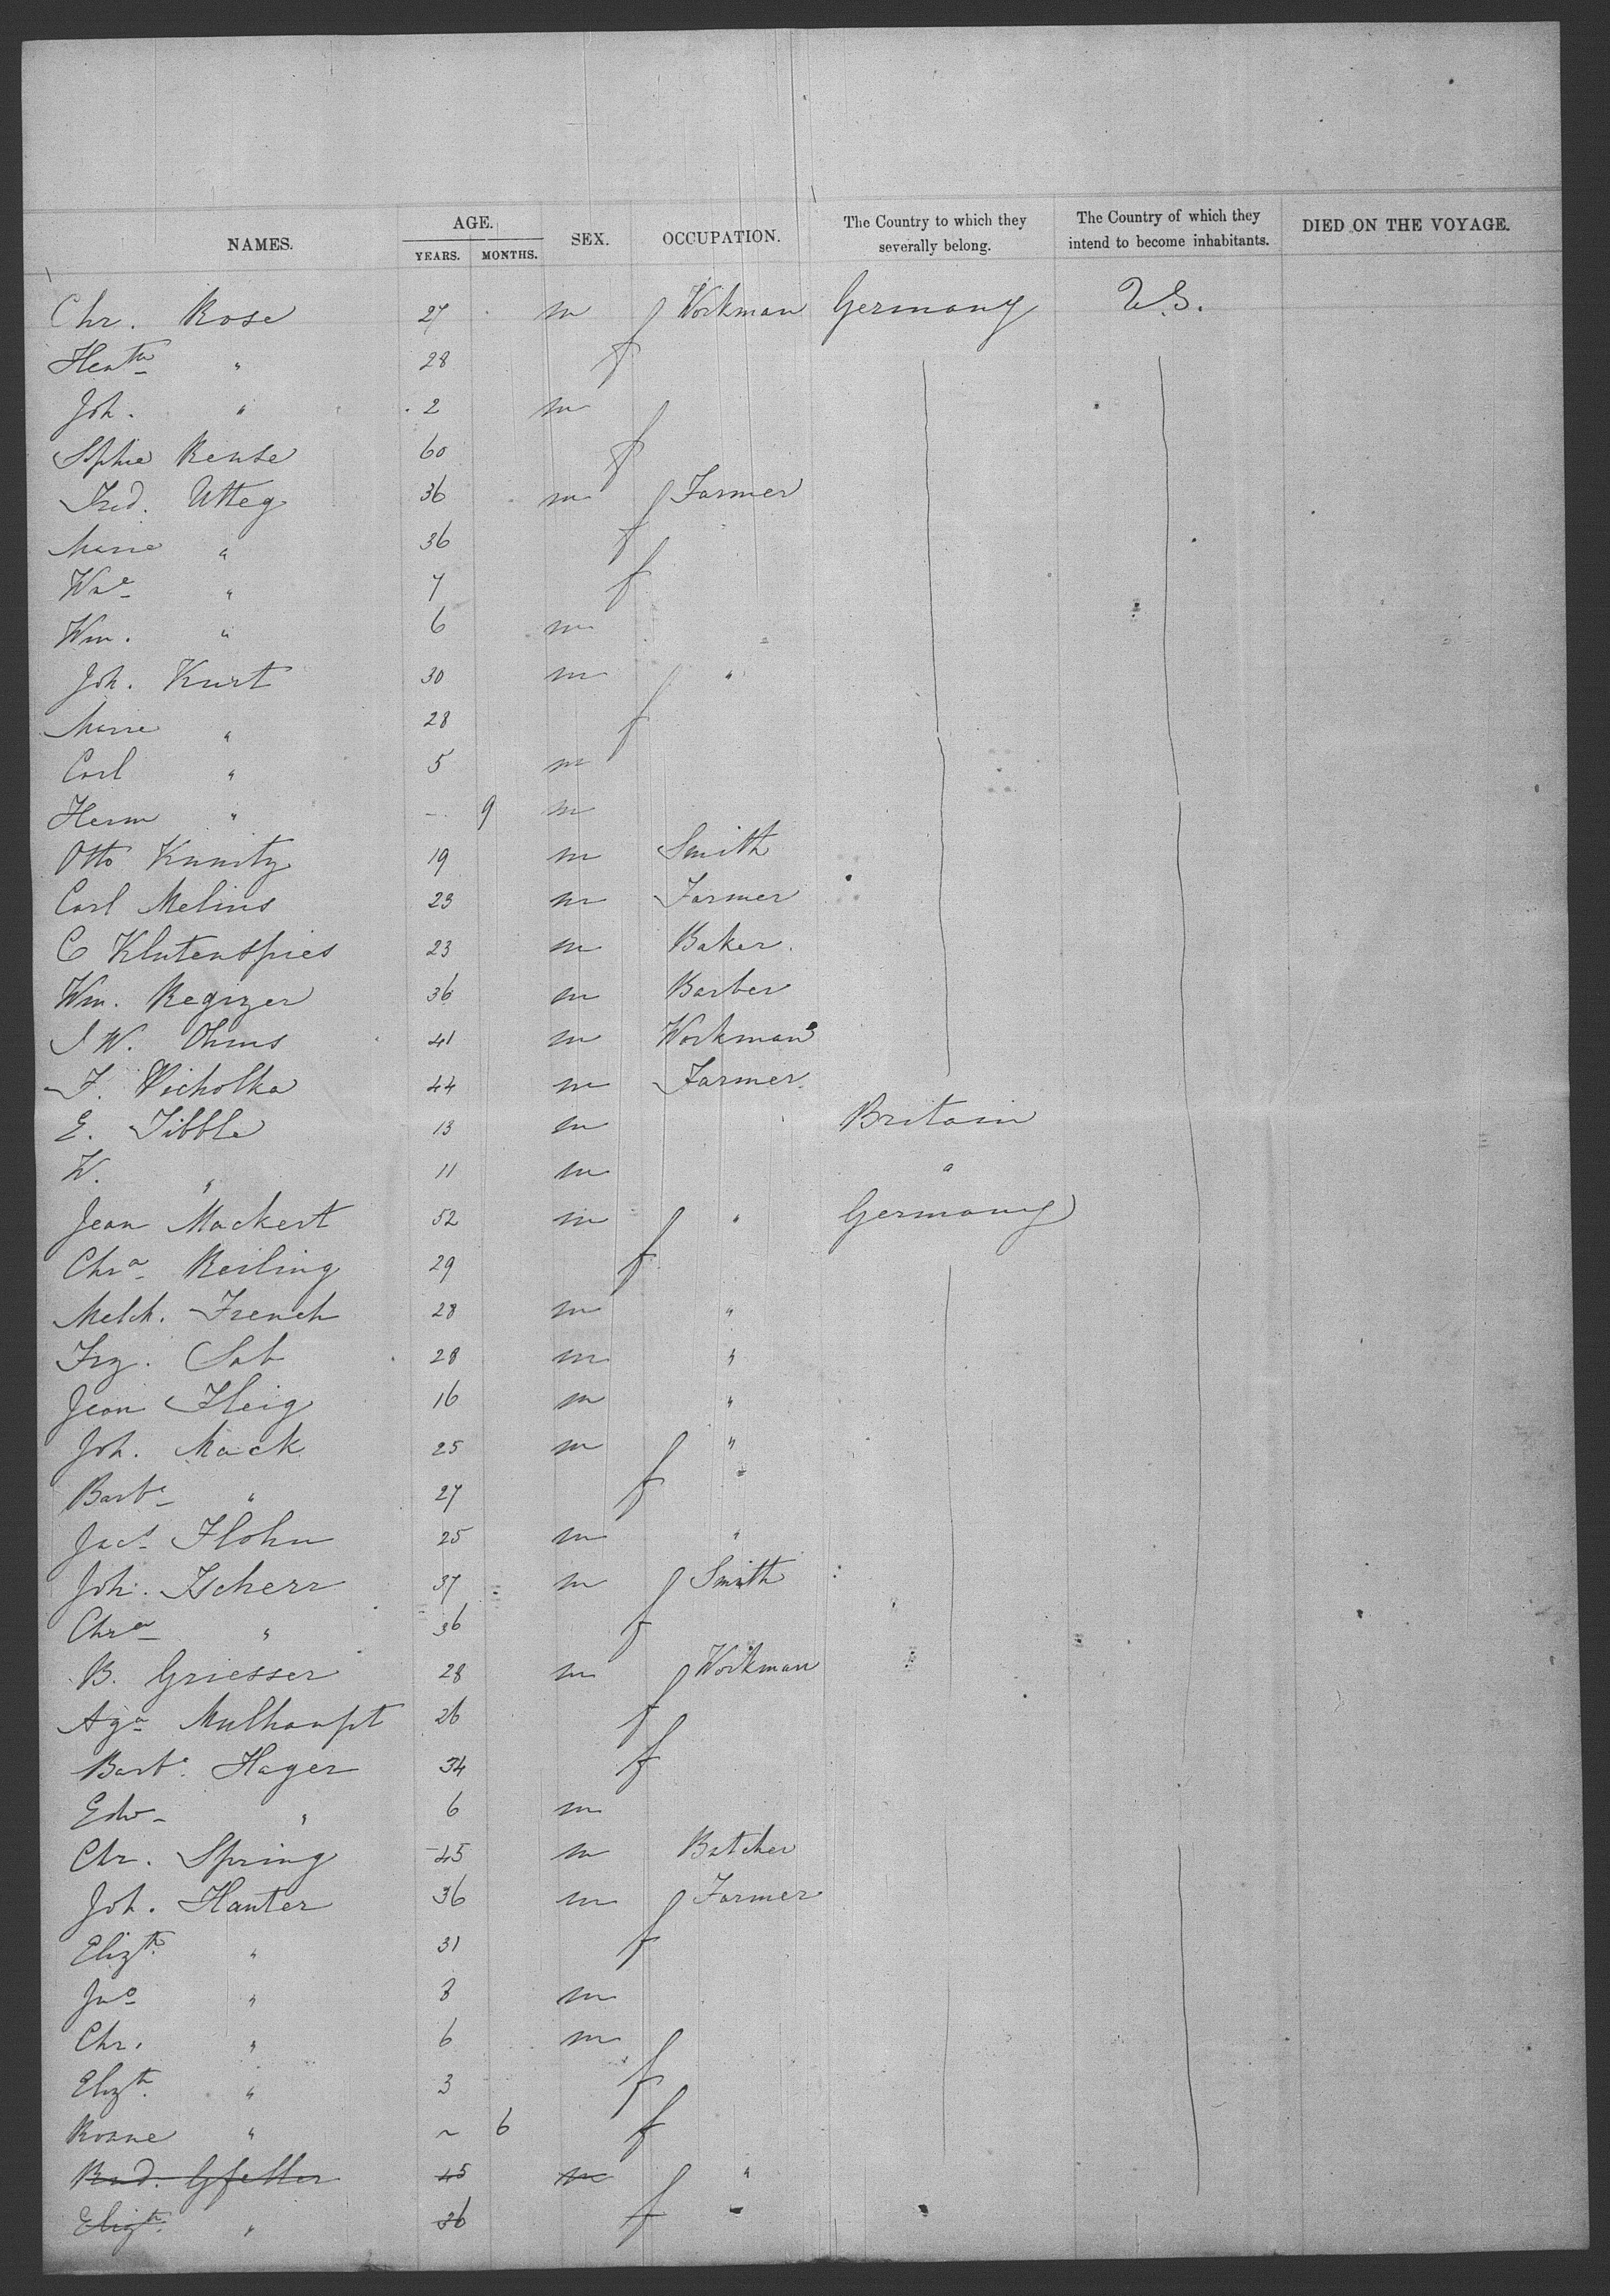 NAMES. AGE. YEARS. MONTHS. SEX. OCCUPATION. The Country to which they severally belong. The Country of which they intend to become inhabitants. DIED ON THE VOYAGE.
Chr. Rose 27 m Workman Germany U.S.
Hentte " 28 f
Joh. " 2 m
Sophie Rense 60 f
Fred. Utteg 36 m Farmer
Marie " 36 f
" 7 f
Wm. " 6 m
Joh. Kurt 30 m "
Marie " 28 f
Carl " 5 m
Herm " - 9 m
Otto Kunitz 19 m Smith
Carl Melins 23 m Farmer
C Klutenspies 23 m Baker.
Wm. Regizer 36 m Barber
J W. Ohms 41 m Workman
F. Wicholka 44 m Farmer.
E. Tibble 13 m Britain
W. " 11 m "
Jean Mackert 52 m " Germany
Chra Reiling 29 f
Melch. French 28 m "
Frz. Sab 28 m "
Jean Fleig 16 m "
Joh. Mack 25 m "
Barba " 27 f "
Jacs Flohn 25 m "
Joh. Tscherr 37 m Smith
Chra " 36 f
B. Griesser 28 m Workman
Aga Mulhaupt 26 f
Barba Hager 34 f
Edw " 6 m
Chr. Spring 45 m Butcher
Joh. Hauter 36 m Farmer
Elizth " 31 f
Jno " 8 m
Chr. " 6 m
Elizth " 3 f
Rosne " ~ 6 f
Rud. Gfeller 45 m "
Elizth " 36 f "